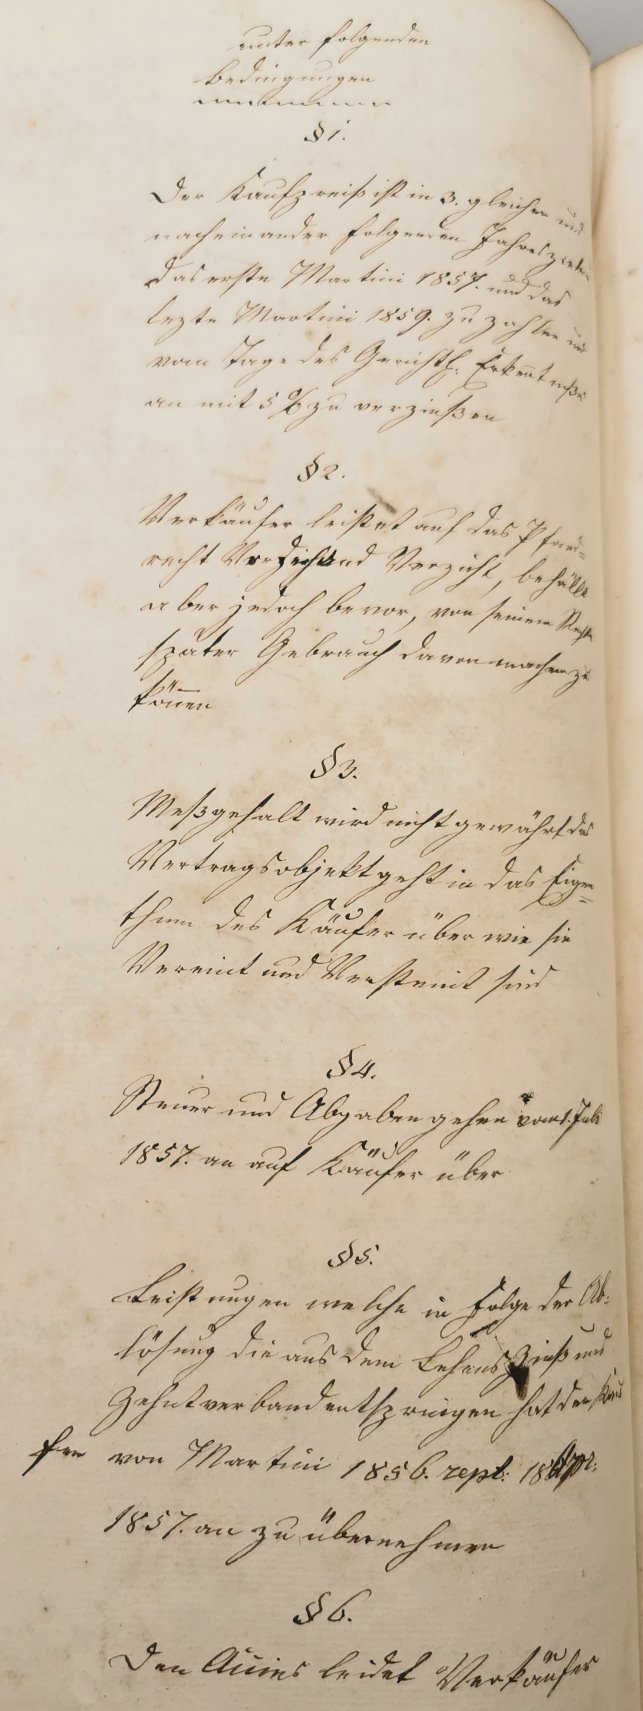 unter folgenden
Bedingungen
§ 1.
Der Kaufpreiß ist in 3. gleichen und
nacheinander folgenden Jahreszielen
das erste Martini 1857. und das
lezte Martini 1859. zu zahlen und
vom Tage des Gerichtl. Erkentnißes
an mit 5 % zu verzinßen
§ 2.
Verkäufer leistet auf das Pfand=
recht Verzicht, behält
aber jedoch bevor, von seinem Recht
später Gebrauch davon machen zu
könen
§ 3.
Meßgehalt wird nicht gewährt das
Vertragsobjekt geht in das Eigen=
thum des Käufer über wie sie
Vereint und Versteint sind
§ 4.
Steuer und Abgaben gehen vom 1. Juli
1857. an auf Käufer über
§ 5.
Leistungen welche in Folge der Ab=
lösung die aus dem Lehens Zinß und
Zehntverband entspringen hat der Käu
fer von Martini 1856. rept:
1857. an zu übernehmen
§ 6.
Den Acies leidet Verkäufer